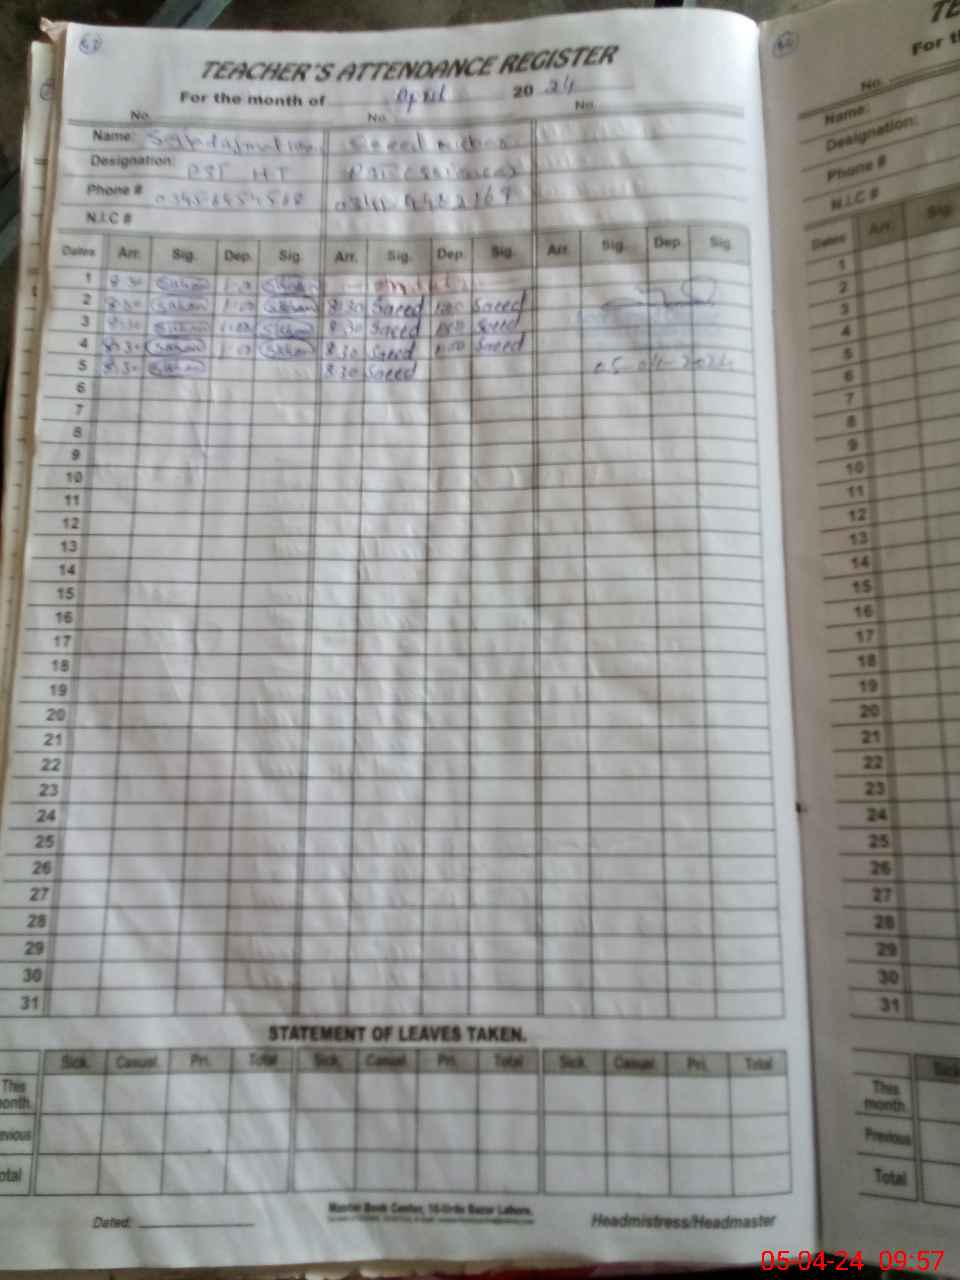 TEACHER'S ATTENDANCE REGISTER
For the month of April 2024
No. No. No.
Name: Saeed
Designation: PST HT
Phone #
N.I.C #
Dates Arr. Sig. Dep. Sig. Arr. Sig. Dep. Sig. Arr. Sig. Dep. Sig.
1 8:30 1:00
2 8:30 1:00 8:30 Saeed 1:00 Saeed
3 8:30 1:00 8:30 Saeed 1:00 Saeed
4 8:30 1:00 8:30 Saeed 1:00 Saeed
5 8:30 8:30 Saeed 05-04-2024
6
7
8
9
10
11
12
13
14
15
16
17
18
19
20
21
22
23
24
25
26
27
28
29
30
31
STATEMENT OF LEAVES TAKEN.
Sick. Casual. Pri. Total Sick. Casual. Pri. Total Sick. Casual. Pri. Total
This
onth.
evious
otal
Master Book Center, 10-Urdu Bazar Lahore.
Dated: Headmistress/Headmaster
TE
For th
No.
Name:
Designation:
Phone #
N.I.C #
Dates Arr. Sig.
1
2
3
4
5
6
7
8
9
10
11
12
13
14
15
16
17
18
19
20
21
22
23
24
25
26
27
28
29
30
31
Sick
This
month.
Previous
Total
05-04-24 09:57